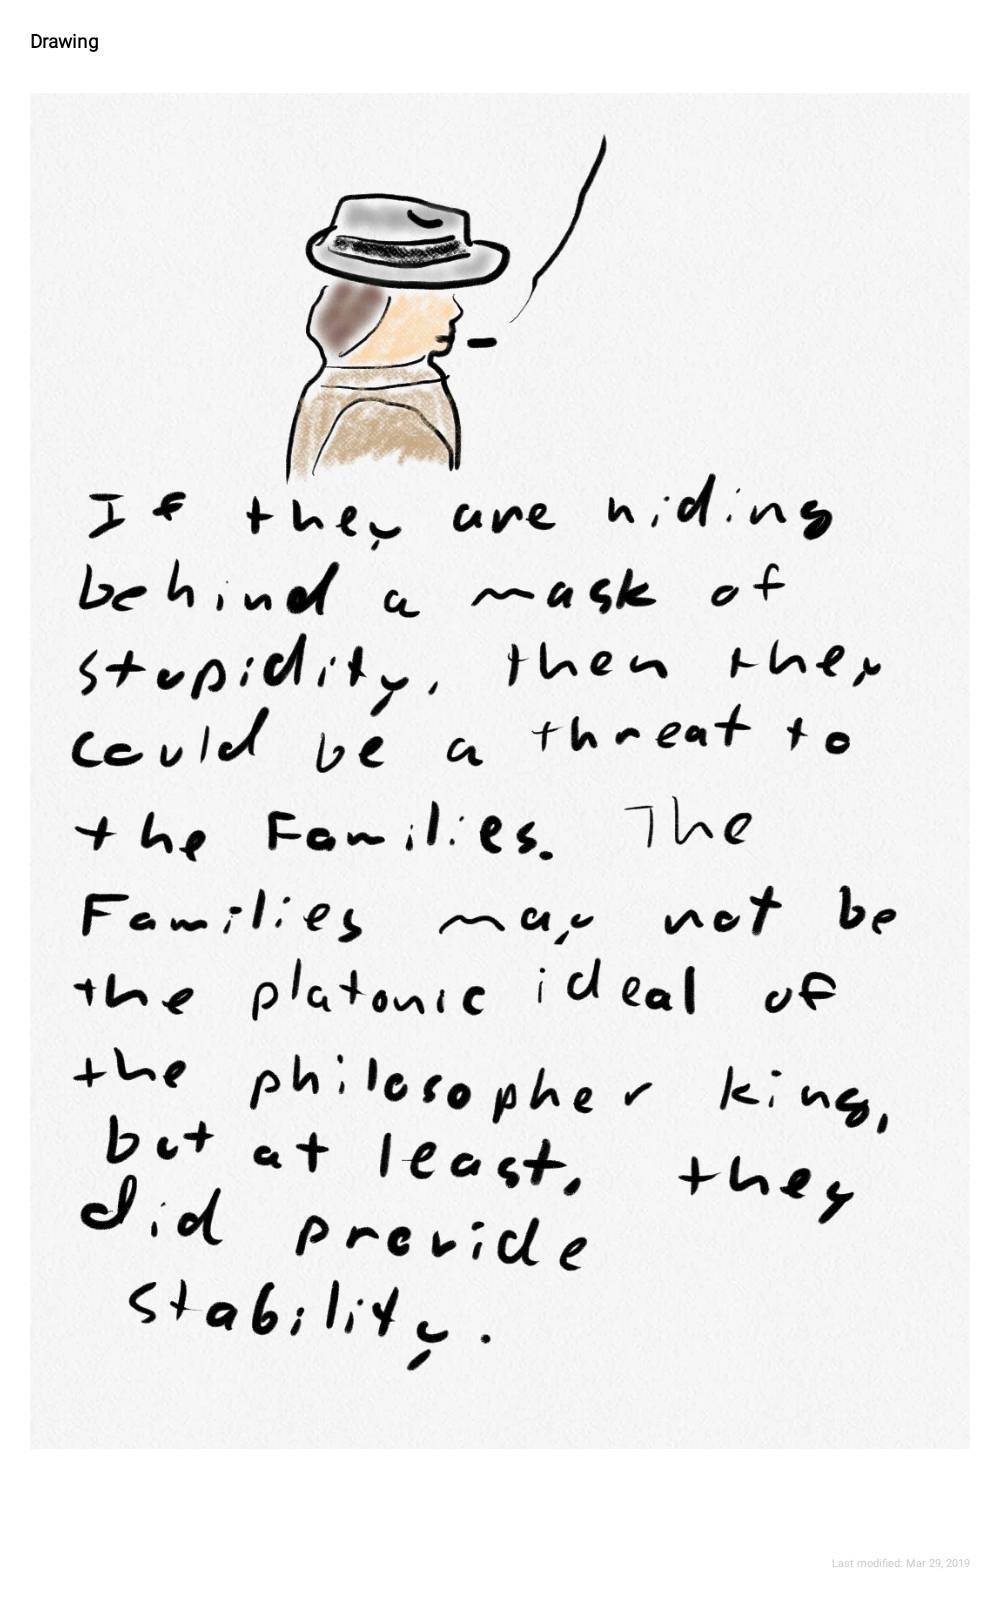 Drawing
If they are hiding
behind a mask of
stupidity, then they
could be a threat to
the Families. The
Families may not be
the platonic ideal of
the philosopher king,
but at least, they
did provide
stability.
Last modified: Mar 29, 2019